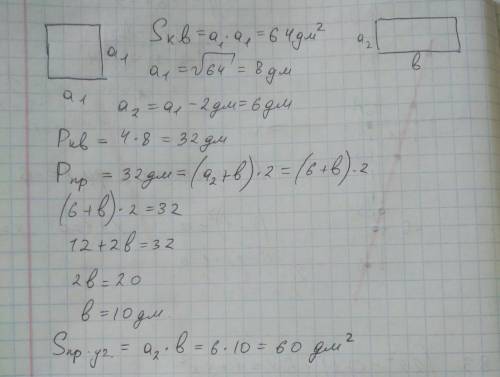 a₁
a₁
Sкв = a₁ · a₁ = 64 дм²
a₁ = √64 = 8 дм
a₂
в
a₂ = a₁ - 2дм = 6дм
Pкв = 4 · 8 = 32 дм
Pпр = 32 дм = (a₂ + в) · 2 = (6 + в) · 2
(6 + в) · 2 = 32
12 + 2в = 32
2в = 20
в = 10 дм
Sпр.уг = a₂ · в = 6 · 10 = 60 дм²